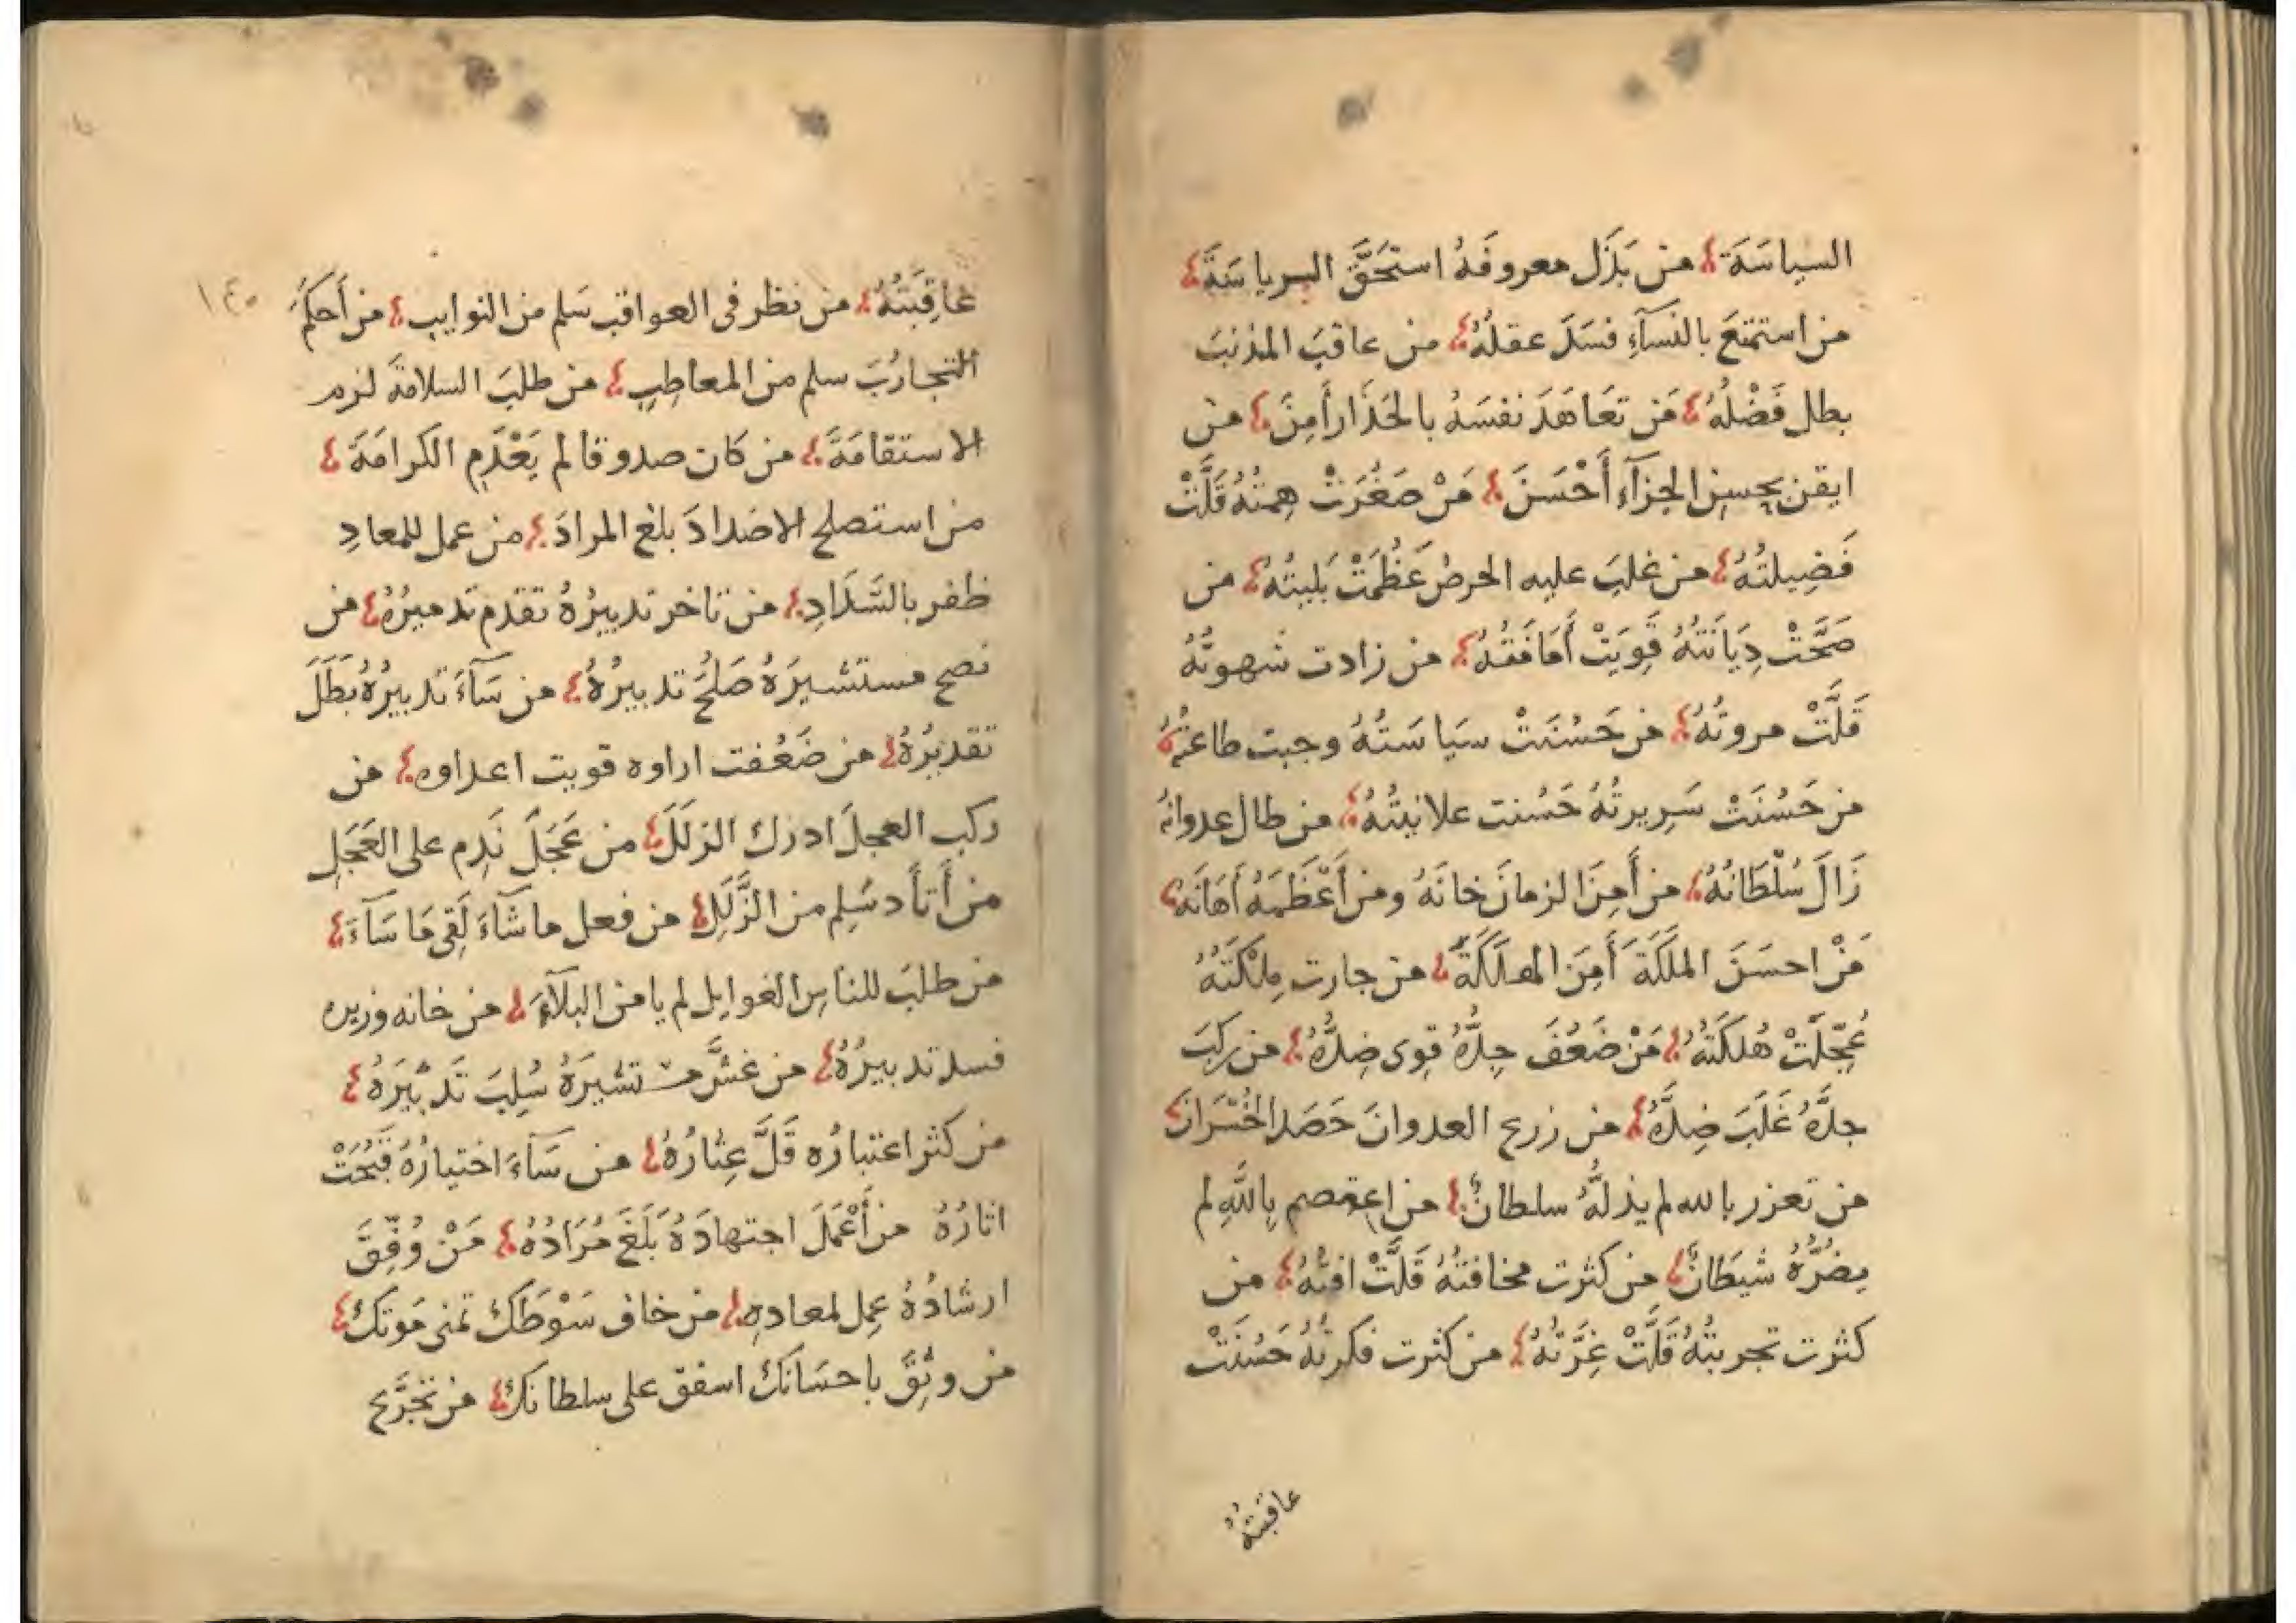 السياسَةَ من بَذَل معروفَهُ استحَقَّ الرياسَةَ
من استمتعَ بالنسآءِ فسَدَ عقلُهُ من عاقبَ المذنبَ
بطل فَضْلُهُ مَن تعَاهَدَ نفسَهُ بالحَذَارِ أَمِنَ من
ايقن بحسن الجزآءِ أَحْسَنَ مَنْ صَغُرَتْ هِمتُهُ قَلَّتْ
فَضِيلتُهُ من غلبَ عليه الحرصُ عَظُمَتْ بَليتُهُ من
صَحَّتْ دِيَانَتُهُ قَوِيَتْ من زادت شهوتُهُ
قَلَّتْ مروتُهُ من حَسُنَتْ سيَاسَتُهُ وجبت طاعتُهُ
من حَسُنَتْ سَرِيرتُهُ حَسُنت علانيتُهُ من طال عدوانُهُ
زَالَ سُلْطَانُهُ من أَمِنَ الزمانَ خانَهُ ومن أَعْظَمَهُ أَهَانَهُ
مَنْ احسَنَ الملَكَةَ أَمِنَ الهلَكَةَ من جارت ملْكَتَهُ
عُجِّلَتْ هُلكَتَهُ مَنْ ضَعُفَ جِدُّهُ قوى ضِدُّهُ من ركبَ
جدَّهُ غَلَبَ ضِدَّهُ من زرع العدوانَ حَصَدَ الخُسْرَانَ
من تعزز بالله لم يذلَّهُ سلطانٌ من اعتصم بِاللّهِ لم
يضُرَّهُ شيطَانٌ من كثرت مخافتُهُ قَلَّتْ افتُهُ من
كثرت تجربتُهُ قَلَّتْ غِرَّتُهُ من كثرت فكرتُهُ حَسُنَتْ
عاقبتهُ
١٤٥
عَاقِبَتُهُ من نظر فى العواقب سَلم من النوايب من أَحكمَ
التجاربَ سلم من المعاطِبِ من طلبَ السلامةَ لزم
الاستقامَةَ من كَان صدوقا لم يَعْدَمِ الكرامَةَ
من استصلح الاضدادَ بلغ المرادَ من عمل للمعادِ
ظفر بالسَّدَادِ من تاخر تدبيرُهُ تقدم تدميرُهُ من
نصح مستشيرَهُ صَلحُ تدبيرُهُ من سَآءَ تدبيرُهُ بَطَلَ
تقديرُهُ من ضَعُفت اراوه قويت اعداوه من
ركب العجلَ ادرك الزلَلَ من عَجَلَ نَدِم على العَجَلِ
من أَتأَد سَلِم من الزَّلَلِ من فعل ما شآءَ لَقِى مَا سَآءَ
من طلبَ للناسِ الغوايل لم يامن البلَآءَ من خانه وزيره
فسد تدبيرُهُ من غشَّ مستشيرَهُ سُلِبَ تَدْبيرَهُ
من كثر اعتبارُه قَلَّ عِثارُهُ من سَآءَ اختيارُهُ قَبُحَتْ
اثارُهُ من أَعْمَلَ اجتهادَهُ بَلَغَ مُرَادُهُ مَنْ وُفِّقَ
ارشادُهُ عمِل لمعادِهِ من خاف سَوْطَكَ تمنى مَوتكَ
من وثِقَ باحسَانكَ اسفق على سلطانكَ من تجرَّع